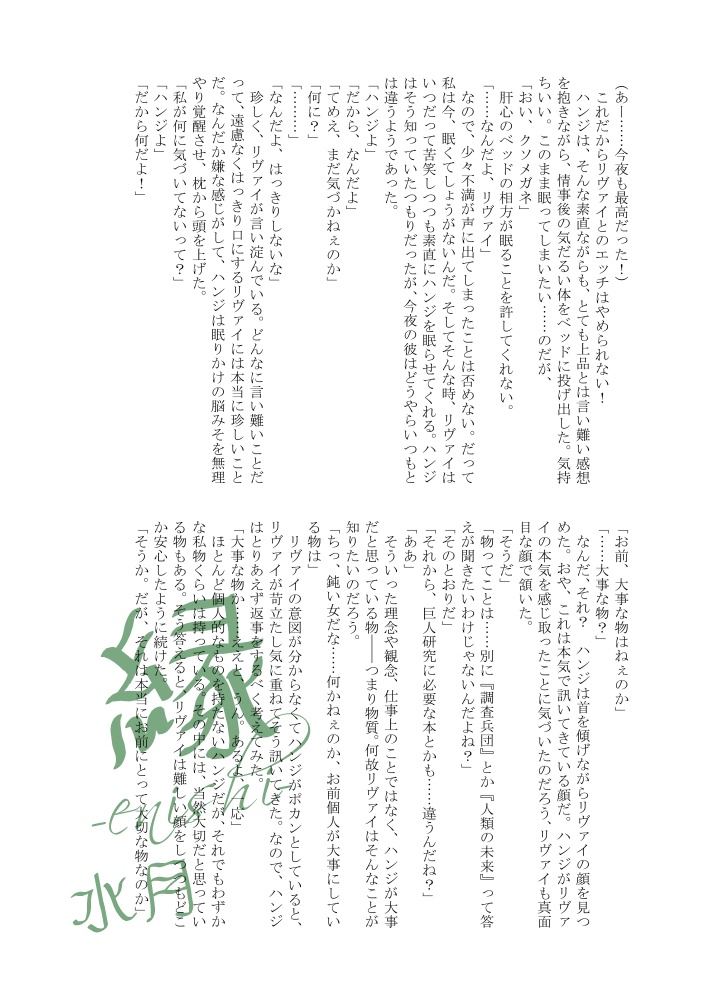 (あー……今夜も最高だった！)
　これだからリヴァイとのエッチはやめられない！
　ハンジは、そんな素直ながらも、とても上品とは言い難い感想
を抱きながら、情事後の気だるい体をベッドに投げ出した。気持
ちいい。このまま眠ってしまいたい……のだが、
「おい、クソメガネ」
　肝心のベッドの相方が眠ることを許してくれない。
「……なんだよ、リヴァイ」
　なので、少々不満が声に出てしまったことは否めない。だって
私は今、眠くてしょうがないんだ。そしてそんな時、リヴァイは
いつだって苦笑しつつも素直にハンジを眠らせてくれる。ハンジ
はそう知っていたつもりだったが、今夜の彼はどうやらいつもと
は違うようであった。
「ハンジよ」
「だから、なんだよ」
「てめえ、まだ気づかねぇのか」
「何に？」
「………」
「なんだよ、はっきりしないな」
　珍しく、リヴァイが言い淀んでいる。どんなに言い難いことだ
って、遠慮なくはっきり口にするリヴァイには本当に珍しいこと
だ。なんだか嫌な感じがして、ハンジは眠りかけの脳みそを無理
やり覚醒させ、枕から頭を上げた。
「私が何に気づいてないって？」
「ハンジよ」
「だから何だよ！」
「お前、大事な物はねぇのか」
「……大事な物？」
　なんだ、それ？　ハンジは首を傾げながらリヴァイの顔を見つ
めた。おや、これは本気で訊いてきている顔だ。ハンジがリヴァ
イの本気を感じ取ったことに気づいたのだろう、リヴァイも真面
目な顔で頷いた。
「そうだ」
「物ってことは……別に『調査兵団』とか『人類の未来』って答
えが聞きたいわけじゃないんだよね？」
「そのとおりだ」
「それから、巨人研究に必要な本とかも……違うんだね？」
「ああ」
　そういった理念や観念、仕事上のことではなく、ハンジが大事
だと思っている物――つまり物質。何故リヴァイはそんなことが
知りたいのだろう。
「ちっ、鈍い女だな……何かねぇのか、お前個人が大事にしてい
る物は」
　リヴァイの意図が分からなくてハンジがポカンとしていると、
リヴァイが苛立たし気に重ねてそう訊いてきた。なので、ハンジ
はとりあえず返事をするべく考えてみた。
「大事な物か……ええと、うん。あるよ、一応」
　ほとんど個人的なものを持たないハンジだが、それでもわずか
な私物くらいは持っている。その中には、当然大切だと思ってい
る物もある。そう答えると、リヴァイは難しい顔をしつつもどこ
か安心したように続けた。
「そうか。だが、それは本当にお前にとって大切な物なのか」
縁
-enishi-
水月